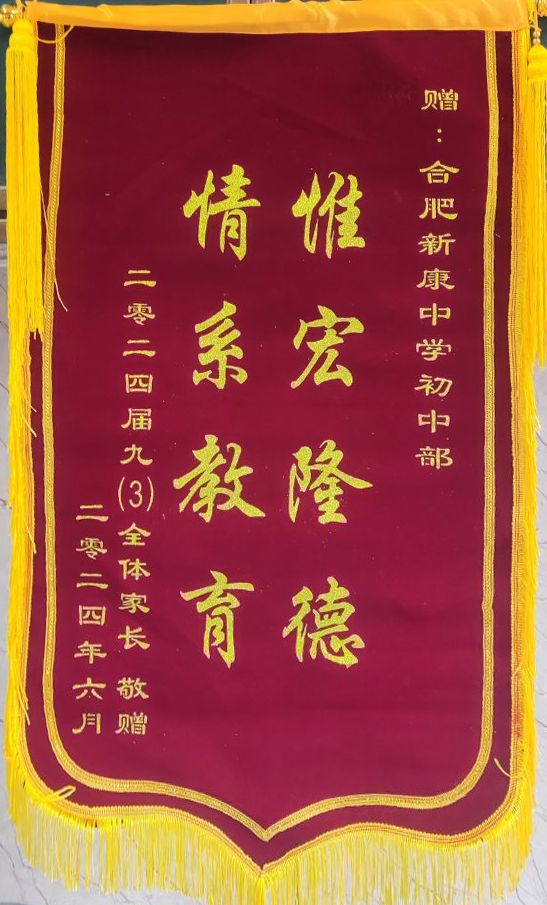 赠：合肥新康中学初中部
惟宏隆德
情系教育
二零二四届九(3)全体家长 敬赠
二零二四年六月